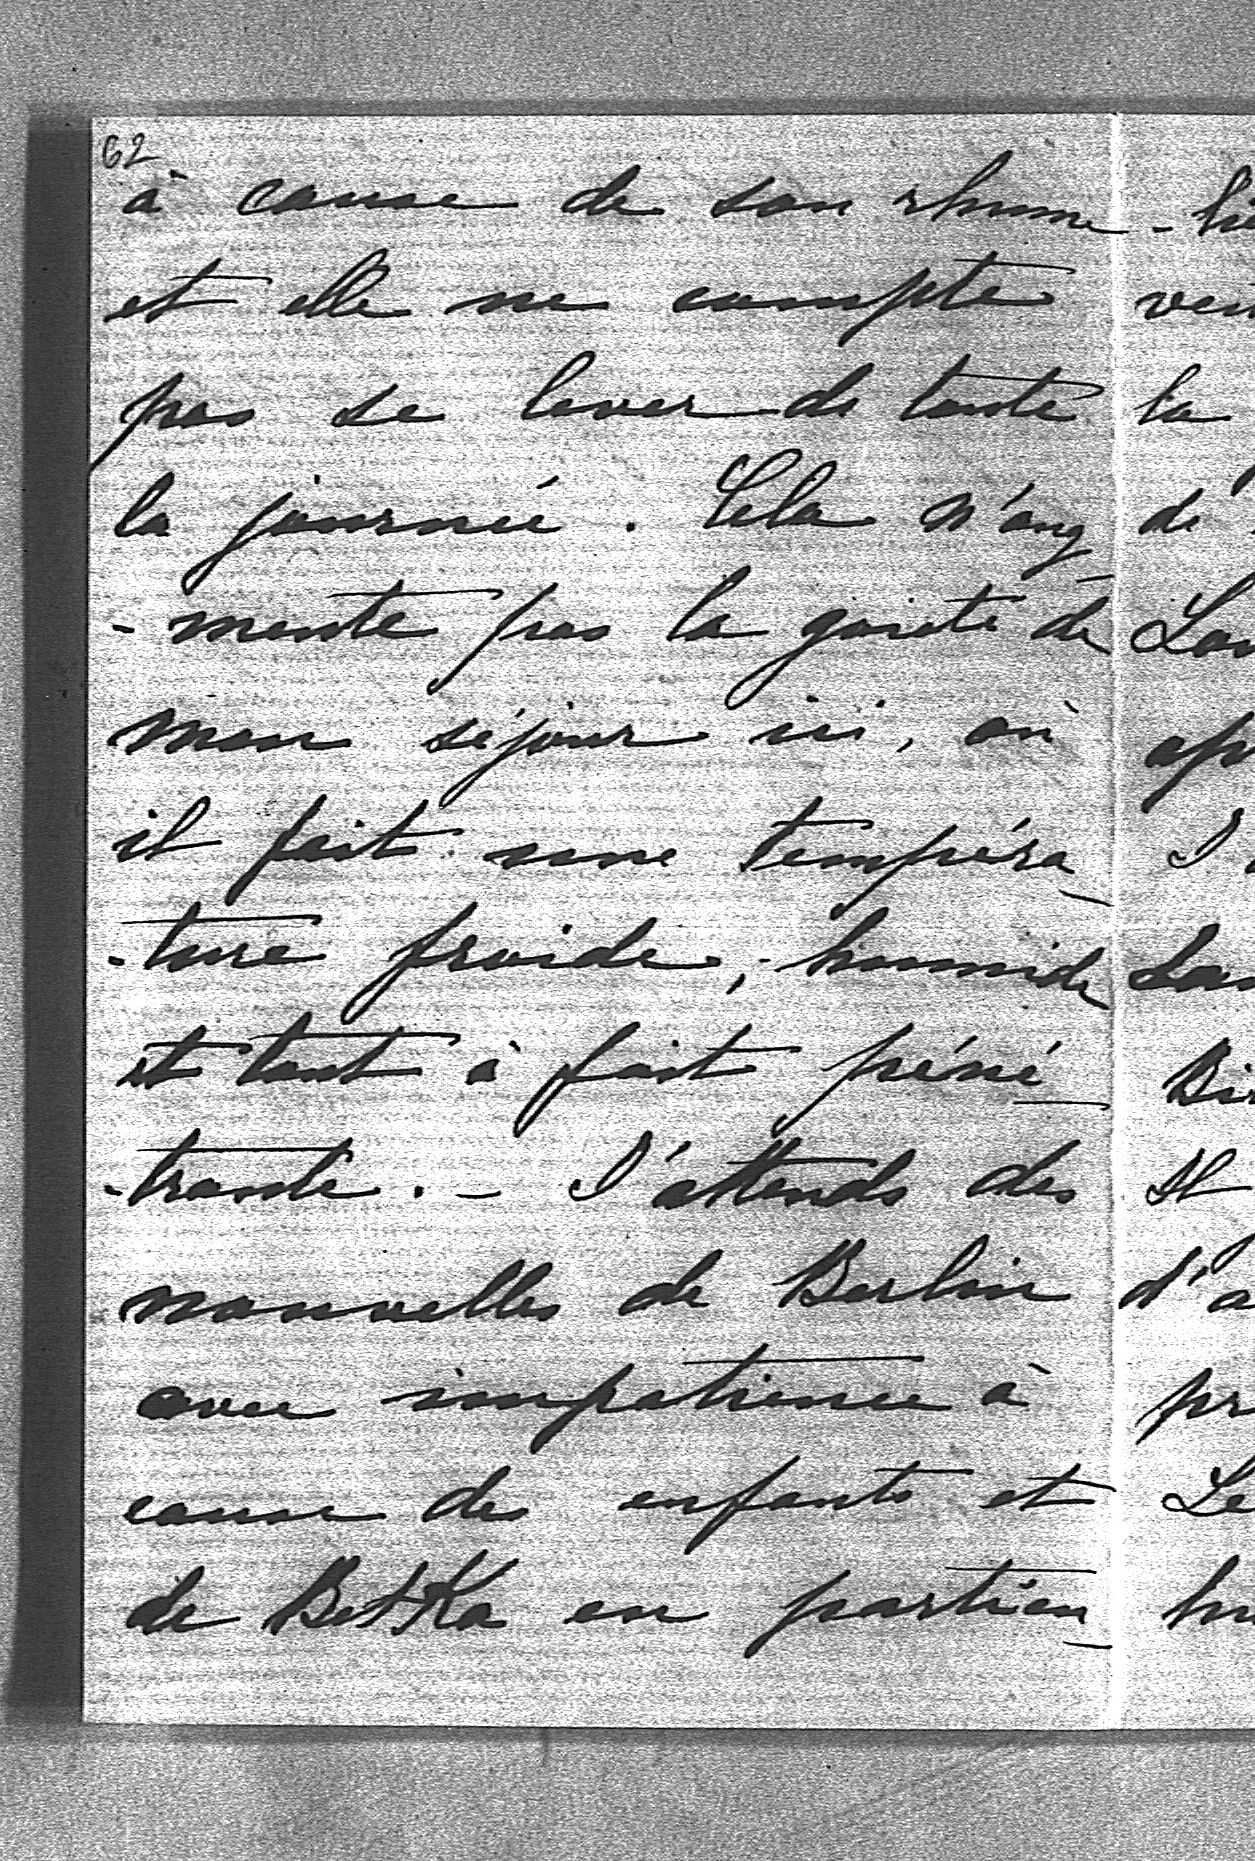 62
à cause de son rhume
et elle ne compte
pas se lever de toute
la journée. Cela n'aug
-mente pas la gaieté de
mon séjour ici, où
il fait une tempéra_
-ture froide, humide
et tout à fait péné_
-trante. - J'attends des
nouvelles de Berlin
avec impatience à
cause des enfants et
de Betka en particu_
la
de
Le